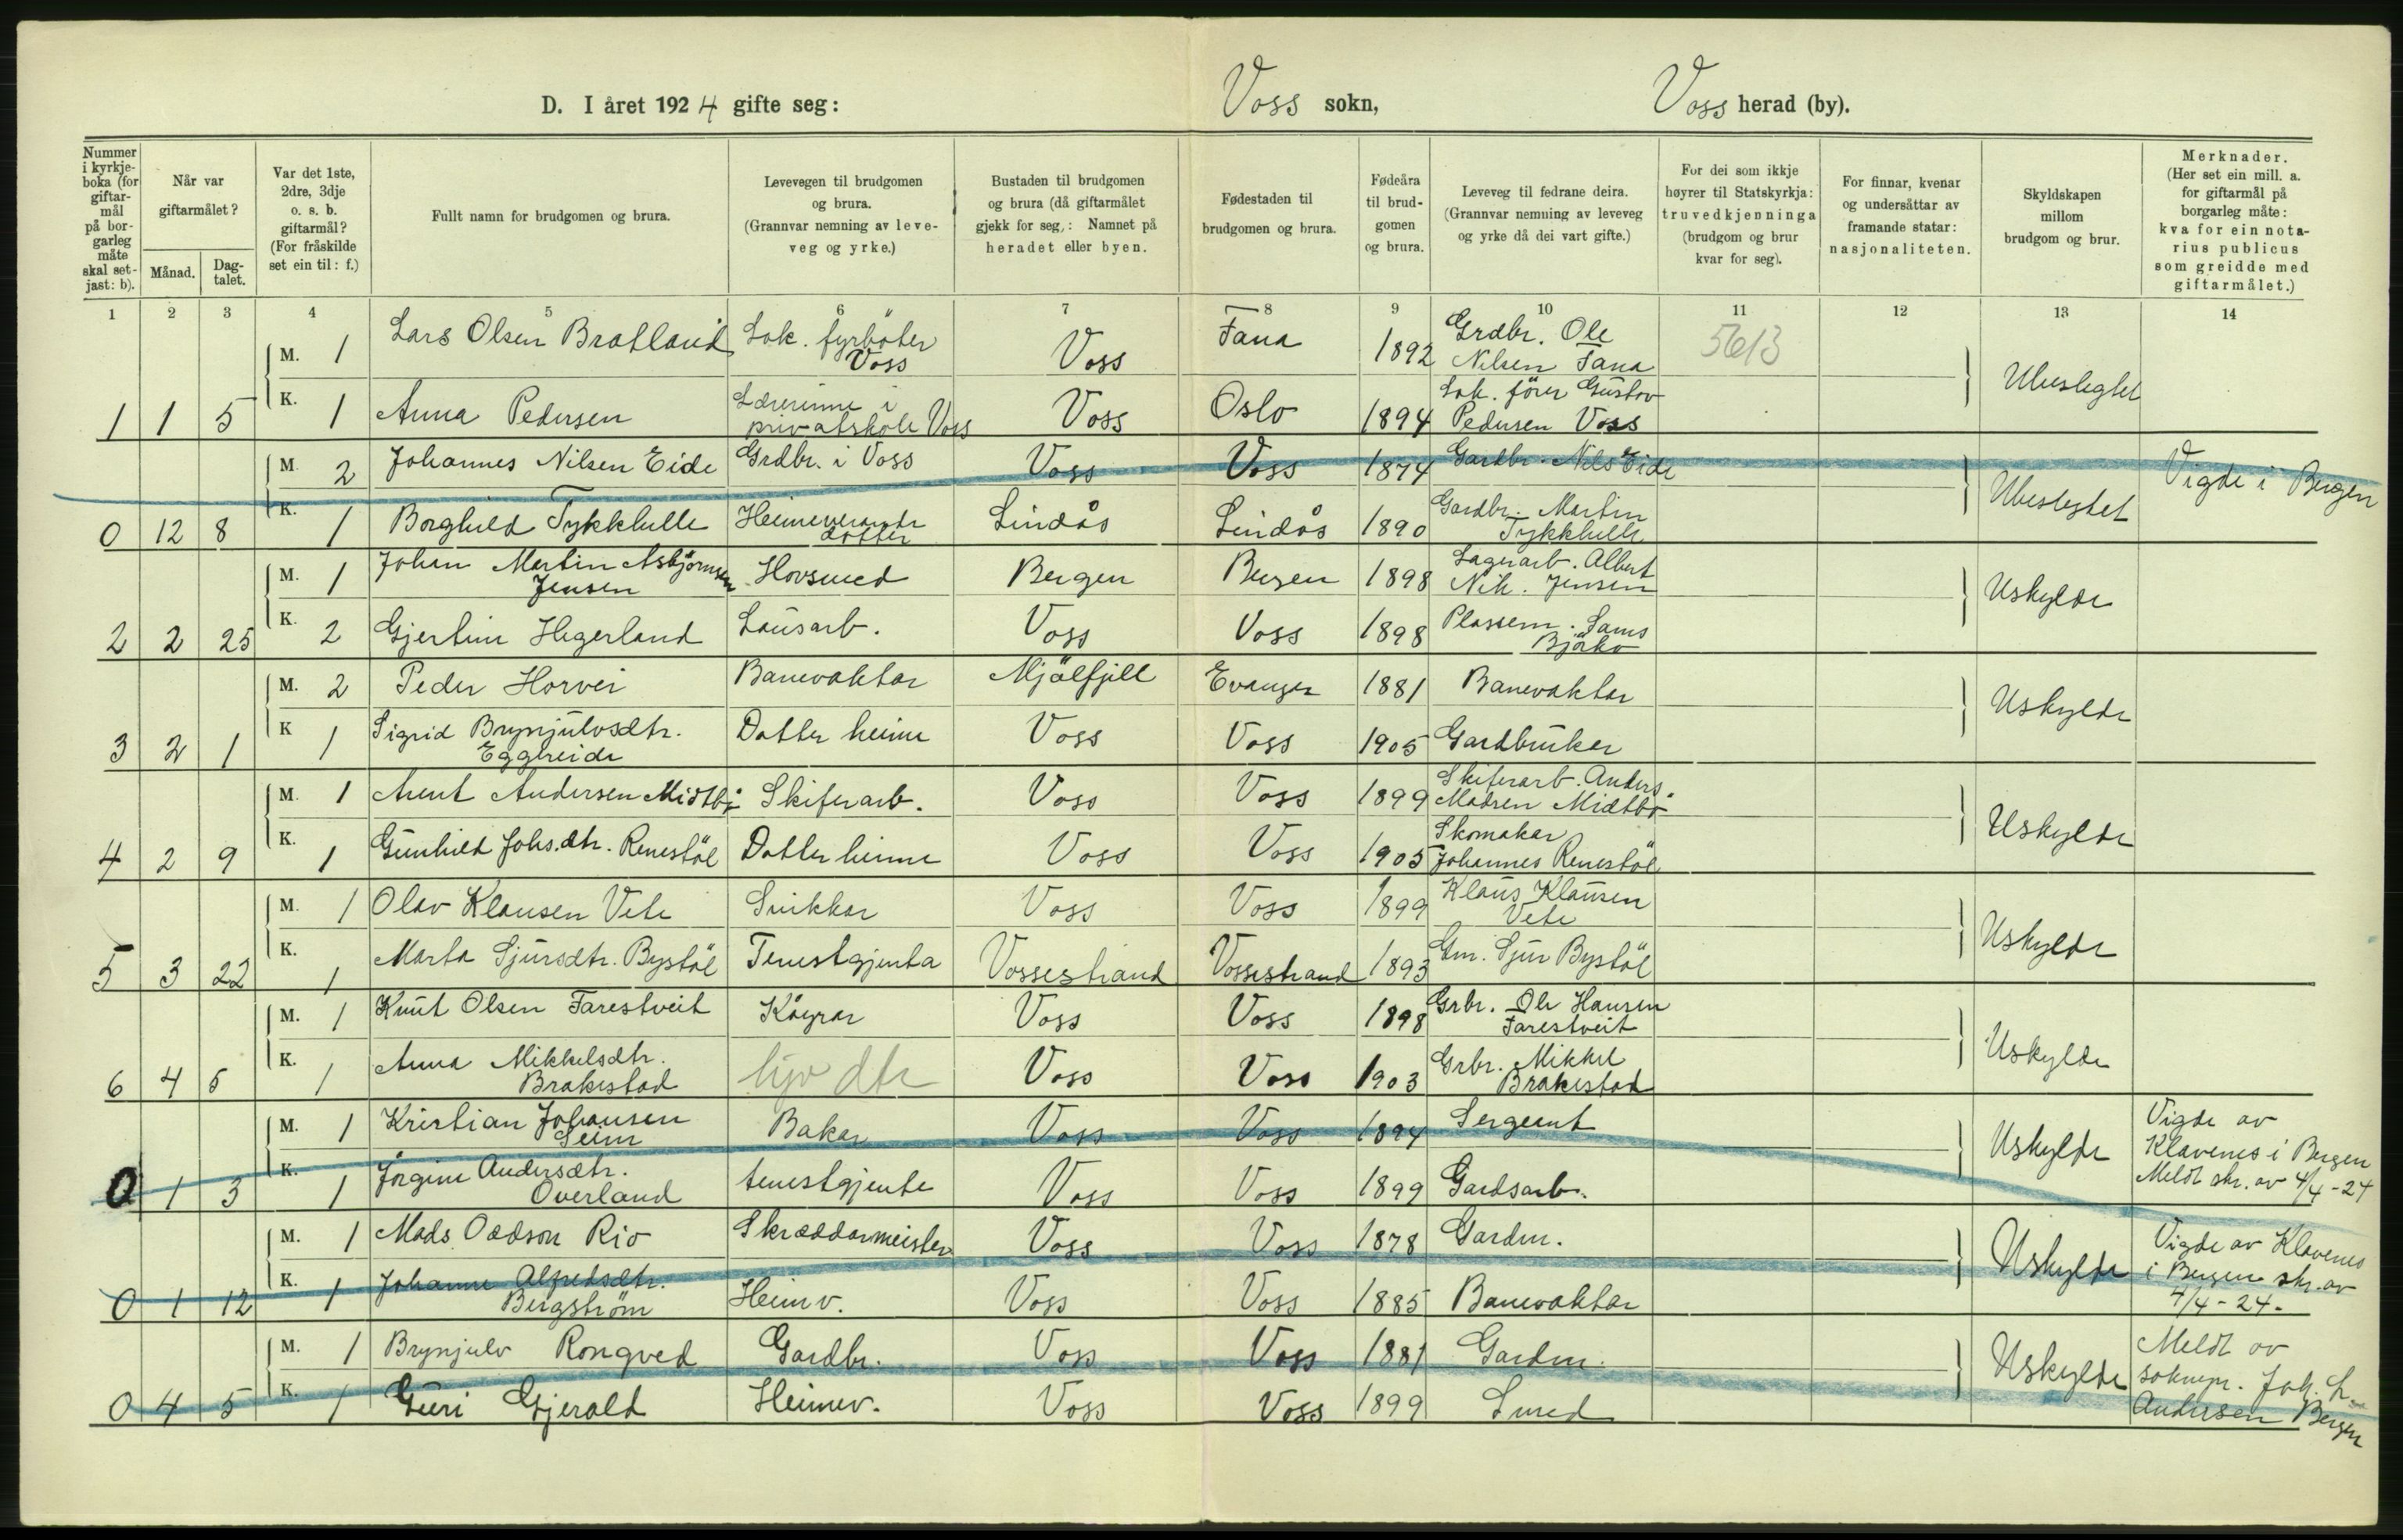 D. I året 1924 gifte seg: Voss sokn, Voss herad (by).
Nummer i kyrkjeboka (for giftarmål på borgarleg måte skal setjast: b).
Når var giftarmålet?
Månad.
Dagtalet.
Var det 1ste, 2dre, 3dje o. s. b. giftarmål? (For fråskilde set ein til: f.)
Fullt namn for brudgomen og brura.
Levevegen til brudgomen og brura. (Grannvar nemning av leveveg og yrke.)
Bustaden til brudgomen og brura (då giftarmålet gjekk for seg,: Namnet på heradet eller byen.
Fødestaden til brudgomen og brura.
Fødeåra til brudgomen og brura.
Leveveg til fedrane deira. (Grannvar nemning av leveveg og yrke då dei vart gifte.)
For dei som ikkje høyrer til Statskyrkja: truvedkjenninga (brudgom og brur kvar for seg).
For finnar, kvenar og undersåttar av framande statar: nasjonaliteten.
Skyldskapen millom brudgom og brur.
Merknader. (Her set ein mill. a. for giftarmål på borgarleg måte: kva for ein notarius publicus som greidde med giftarmålet.)
1 2 3 4 5 6 7 8 9 10 11 12 13 14
M. 1 Lars Olsen Bratland Lok. fyrbøter Voss Voss Fana 1892 Grdbr. Ole Nilsen Fana 5613
1 1 5 K. 1 Anna Pedersen Lærerinne i privatskole Voss Voss Oslo 1894 Lok. fører Gustav Pedersen Voss Ubeslegtet
M. 2 Johannes Nilsen Eide Grdbr. i Voss Voss Voss 1874 Gardbr. Nils Eide Vigde i Bergen
0 12 8 K. 1 Borghild Tykkhelle Heimeverande dotter Lindås Lindås 1890 Gardbr. Martin Tykkhelle Ubeslegtet
M. 1 Johan Martin Asbjörnsen Jensen Hovsmed Bergen Bergen 1898 Lagerarb. Albert Nik. Jensen
2 2 25 K. 2 Gjertine Hegerland Lausarb. Voss Voss 1898 Plassem. Lams Björke Uskylde
M. 2 Peder Horvei Banevaktar Mjölfjell Evanger 1881 Banevaktar
3 2 1 K 1 Sigrid Brynjulvsdtr. Eggereide Dotter heime Voss Voss 1905 Gardbruker Uskylde
M. 1 Arent Andersen Midtbø Skiferarb. Voss Voss 1899 Skiferarb. Anders Madsen Midtbø
4 2 9 K. 1 Gunhild Johs.dtr. Renestöl Dotter heime Voss Voss 1905 Skomakar Johannes Renestöl Uskylde
M. 1 Olav Klausen Vete Snikkar Voss Voss 1899 Klaus Klausen Vete
5 3 22 K. 1 Marta Sjursdtr. Bystöl Tenestgjenta Vossestrand Vossestrand 1893 Gm. Sjur Bystöl Uskylde
M. 1 Knut Olsen Farestveit Kåyrar Voss Voss 1898 Grbr. Ole Hansen Farestveit
6 4 5 K. 1 Anna Mikkelsdtr. Brakestad hjv dtr Voss Voss 1903 Grbr. Mikkel Brakestad Uskylde
M. 1 Kristian Johansen Seim Bakar Voss Voss 1894 Sergeant Vigde av Klavenes i Bergen Meldt skr. av 4/4-24
0 1 3 K. 1 Jörgine Andersdtr. Överland tenestgjente Voss Voss 1899 Gardsarb. Uskylde
M. 1 Mads Oddson Rio Skræddarmeister Voss Voss 1878 Gardm. Vigde av Klavenes i Bergen skr. av 4/4-24.
0 1 12 K. 1 Johanne Alfredsdtr. Bergström Heimv. Voss Voss 1885 Banevaktar Uskylde
M. 1 Brynjulv Rongved Gardbr. Voss Voss 1881 Gardm. Meldt av soknepr. Joh. L. Andersen Bergen
0 4 5 K. 1 Guri Gjerald Heimev. Voss Voss 1899 Smed Uskylde